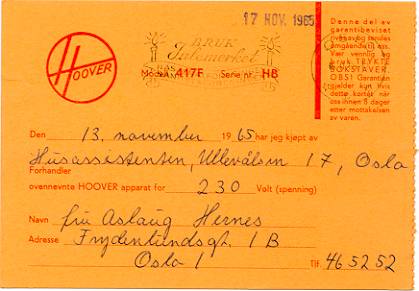 17 NOV. 1965
Denne del av
garantibeviset
omgående til oss.
Vær vennlig og
bruk TRYKTE
BOKSTAVER.
OBS! Garantien
gjelder kun hvis
dette kortet når
oss innen 8 dager
etter mottakelsen
av varen.
BRUK
Julemerket
HOOVER
Modell 417F Serie nr. HB
Den 13. november 1965 har jeg kjøpt av
Husassistenten, Ullevålsvn 17, Oslo
Forhandler
ovennevnte HOOVER apparat for 230 Volt (spenning)
Navn fru Aslaug Hernes
Adresse Frydenlundsgt. 1B
Oslo 1 Tlf. 46 52 52